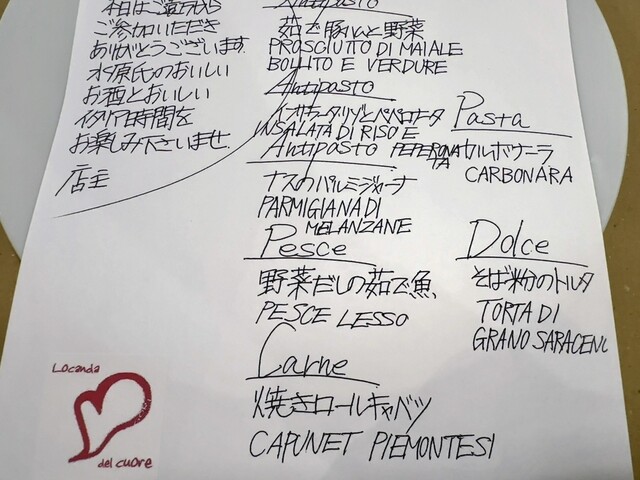 本日はご遠方から
ご参加いただき
ありがとうございます。
水原氏のおいしい
お酒とおいしい
イタリア時間を
お楽しみ下さいませ
店主
Antipasto
茹で豚ハムと野菜
PROSCIUTTO DI MAIALE
BOLLITO E VERDURE
Antipasto
INSALATA DI RISO E
PEPERONA
TA
Antipasto
ナスのパルミジャーナ
PARMIGIANA DI
MELANZANE
Pesce
野菜だしの茹で魚
PESCE LESSO
Carne
焼きロールキャベツ
CAPUNET PIEMONTESI
Pasta
カルボナーラ
CARBONARA
Dolce
そば粉のトルタ
TORTA DI
GRANO SARACENO
Locanda
del cuore